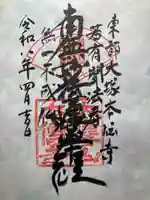 東都大塚本伝寺
若有聞法者
南無妙法蓮華経
無一不成仏
令和六年四月吉日